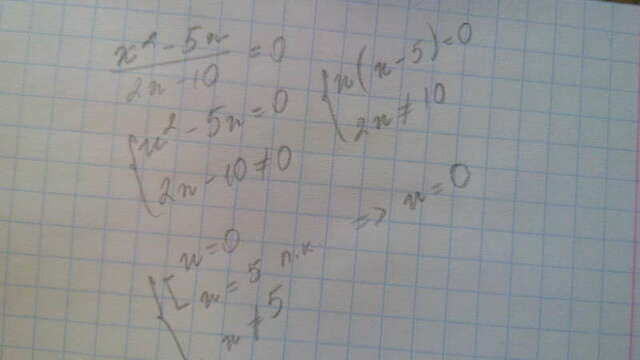 x² - 5x / 2x - 10 = 0
{ x² - 5x = 0
2x - 10 ≠ 0
{ x(x - 5) = 0
2x ≠ 10
{ [ x = 0
x = 5 п.к
x ≠ 5
=> x = 0